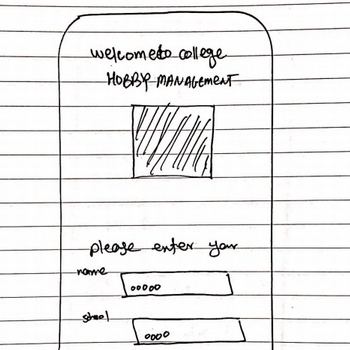 welcometo college
HOBBY MANAGEMENT
please enter your
name
ooooo
school
oooo